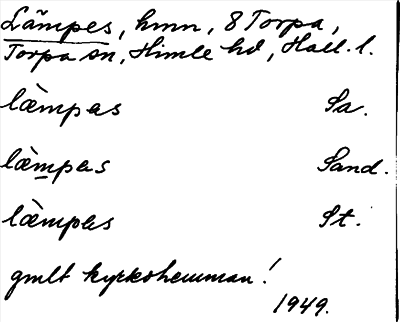 Lämpes, hmn, 8 Torpa,
Torpa sn, Himle hd, Hall. l.
læ̀mpəs Sa.
læ̀mpəs Sand.
læ̀mpəs St.
gmlt kyrkohemman!
1949.